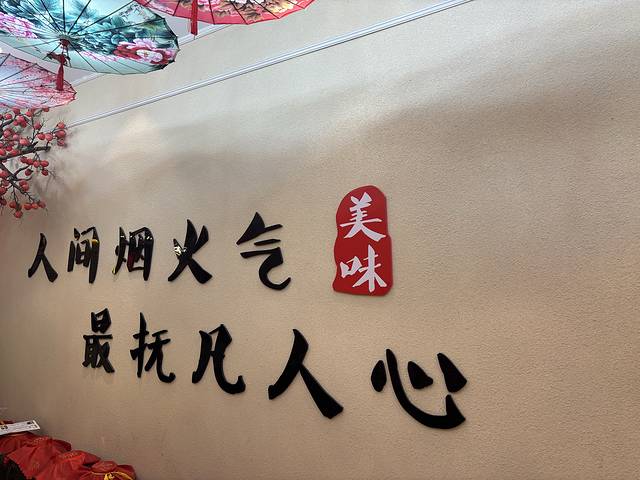 人间烟火气
美味
最抚凡人心